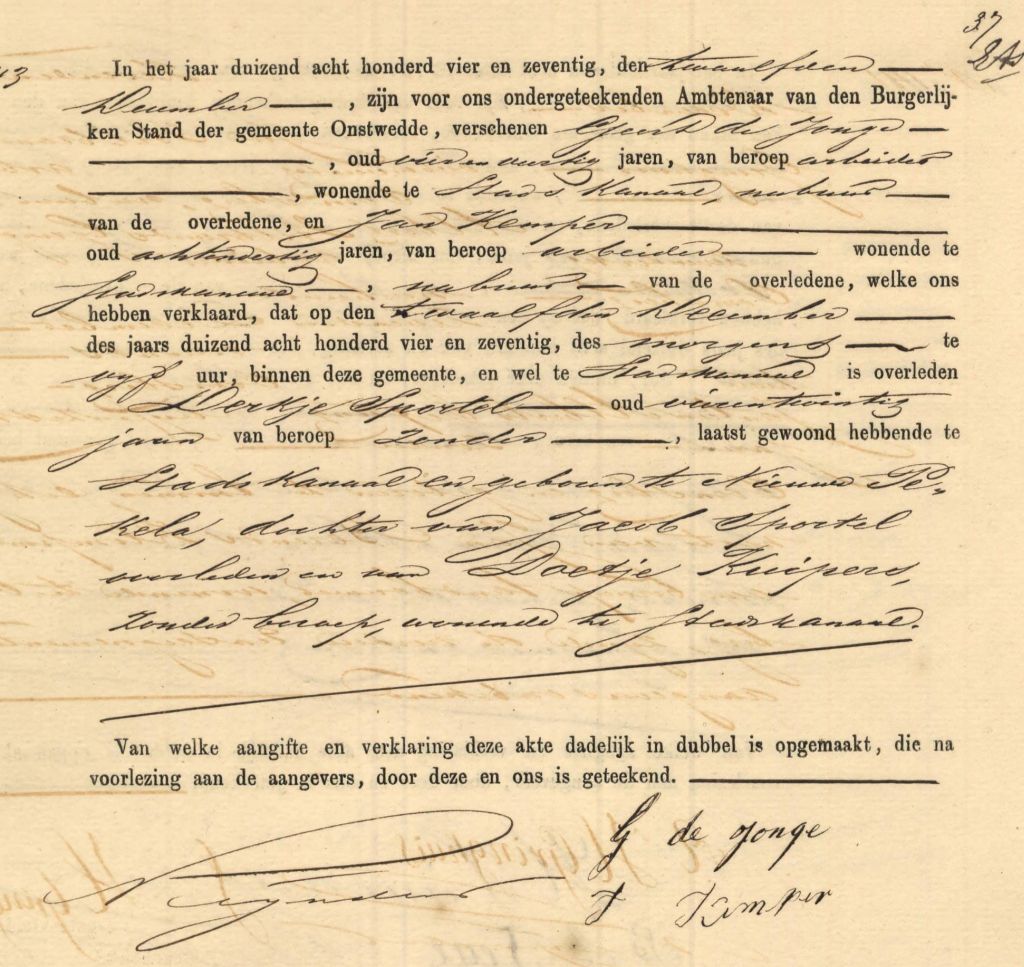 37
In het jaar duizend acht honderd vier en zeventig, den twaalfden
December, zijn voor ons ondergeteekenden Ambtenaar van den Burgerlij-
ken Stand der gemeente Onstwedde, verschenen Geert de Jonge
, oud vier en veertig jaren, van beroep arbeider
, wonende te Stads Kanaal, nabuur
van de overledene, en Jan Kemper
oud achtendertig jaren, van beroep arbeider wonende te
Stadskanaal, nabuur van de overledene, welke ons
hebben verklaard, dat op den twaalfden December
des jaars duizend acht honderd vier en zeventig, des morgens te
vyf uur, binnen deze gemeente, en wel te Stadskanaal is overleden
Derkje Sportel oud vierentwintig
jaren van beroep zonder, laatst gewoond hebbende te
Stadskanaal en geboren te Nieuwe Pe-
kela, dochter van Jacob Sportel
overleden en van Doetje Kuipers,
zonder beroep, wonende te Stadskanaal.
Van welke aangifte en verklaring deze akte dadelijk in dubbel is opgemaakt, die na
voorlezing aan de aangevers, door deze en ons is geteekend.
G de Jonge
J Kemper